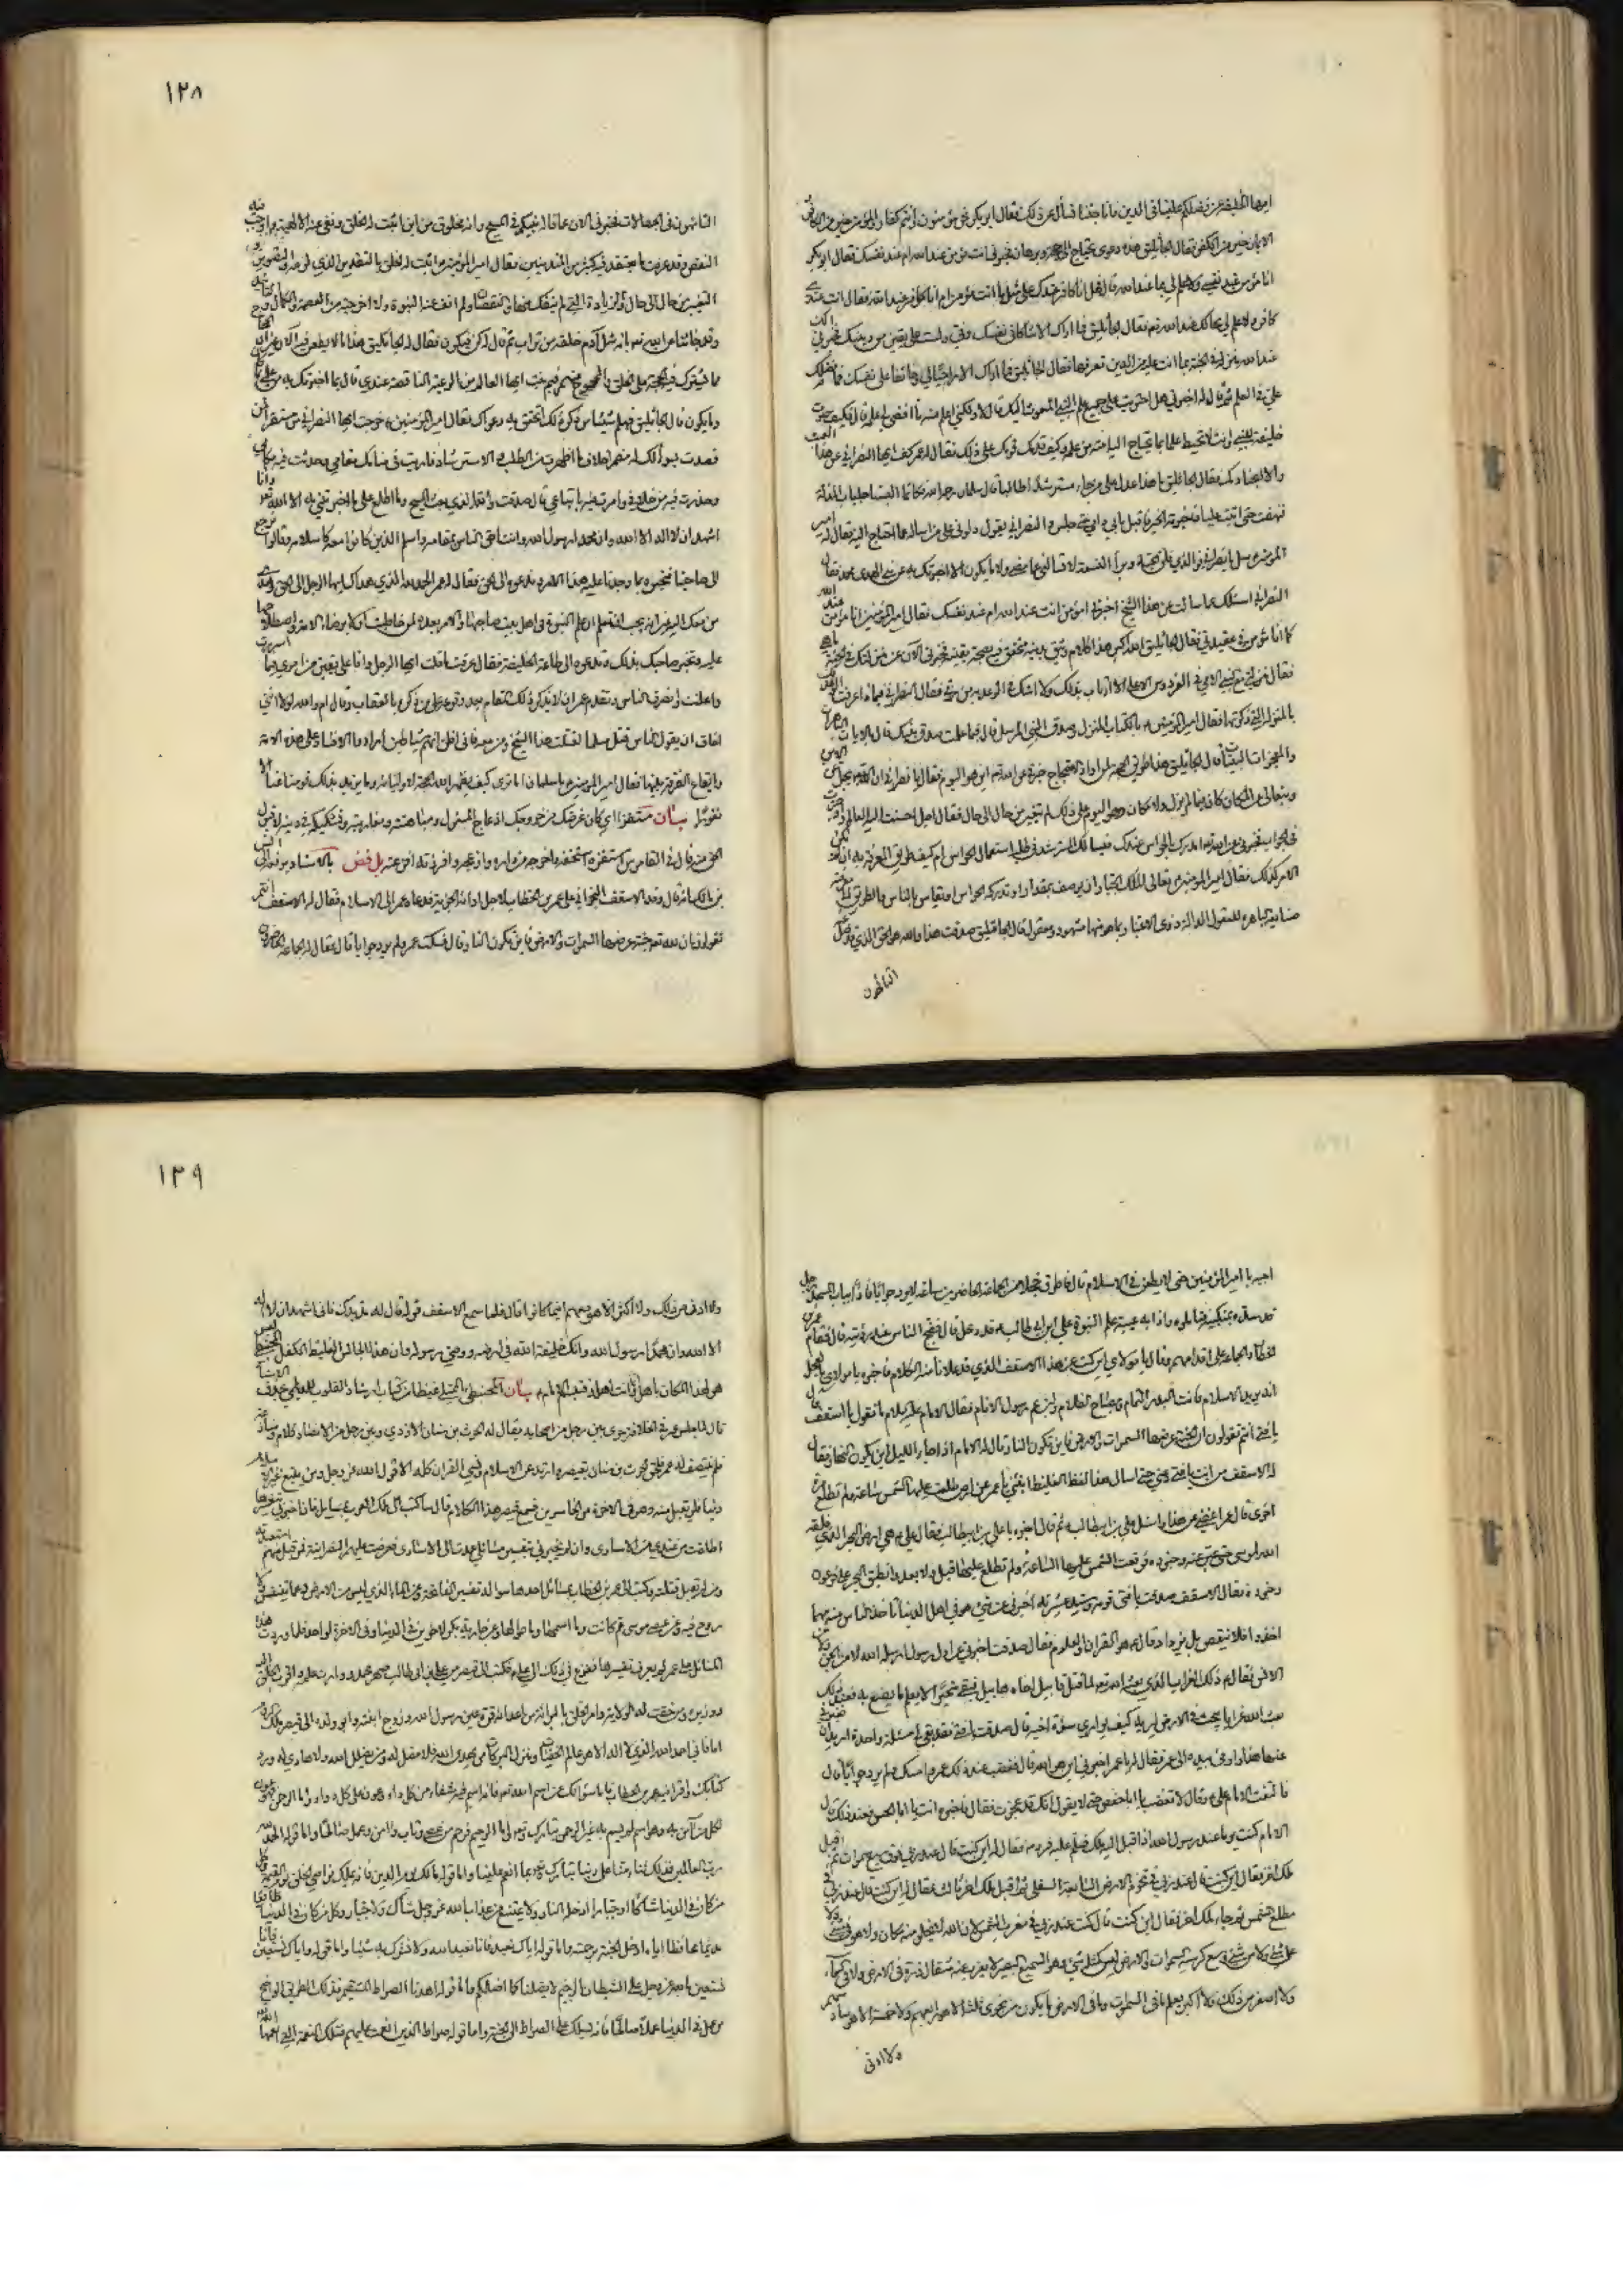 ايها الخليفة عن فضلكم علينا في الدين فانا جئنا نسأل عن ذلك فقال ابو بكر نحن مؤمنون وانتم كفار والمؤمن خير من الكافر
الايمان خير من الكفر فقال الجاثليق هذه دعوى يحتاج الى حجة وبرهان فخبرني انت مؤمن عند الله ام عند نفسك فقال ابو بكر
انا مؤمن عند نفسي ولا علم لي بما عند الله قال فهل انا كافر عندك على مثل ما انت مؤمن ام انا كافر عند الله فقال انت عندي
كافر ولا علم لي بحالك عند الله تعالى فقال الجاثليق فما اراك الا شاكا في نفسك وفيّ ولست على يقين من دينك فخبرني الك
عند الله منزلة في الجنة بما انت عليه من الدين تعرفها فقال
علي في العلم ثم قال له اخبرني هل احتويت على جميع علم النبي المبعوث اليك قال لا ولكني اعلم منه ما افضى لي علمه قال فكيف صرت
خليفة للنبي وانت لا تحيط علما بما يحتاج اليه امته من علمه وكيف قدمك قومك على ذلك فقال له عمر كف ايها النصراني عن هذا العتب
والا ابحنا دمك فقال الجاثليق ما هذا عدل على من جاء مسترشدا طالبا قال سلمان رحمه الله فكانما البسنا جلباب المذلة
فنهضت حتى اتيت عليا فاخبرته الخبر فاقبل بابي وامي حتى جلس والنصراني يقول دلوني على من اساله عما احتاج اليه فقال له امير
المؤمنين سل يا نصراني فوالذي فلق الحبة وبرأ النسمة لا تسألني عما مضى ولا ما يكون الا اخبرتك به عن نبي الهدى محمد فقال
النصراني اسئلك عما سالت عنه هذا الشيخ اخبرني امؤمن انت عند الله ام عند نفسك فقال امير المؤمنين انا مؤمن عند الله
كما انا مؤمن في عقيدتي فقال الجاثليق الله اكبر هذا كلام وثيق بدينه متحقق فيه بصحة يقينه فخبرني الآن عن منزلتك في الجنة ما هي
فقال منزلتي مع النبي الامي في الفردوس الاعلى لا ارتاب بذلك ولا اشك في الوعد به من ربي فقال النصراني فبماذا عرفت الوعد لك
بالمنزلة التي ذكرتها فقال امير المؤمنين بالكتاب المنزل وصدق النبي المرسل قال فبما علمت صدق نبيك قال بالايات الباهرات
والمعجزات البينات قال الجاثليق هذا طريق الحجة لمن اراد الاحتجاج خبرني عن الله تعالى اين هو اليوم فقال يا نصراني ان الله يجل عن الاين
ويتعالى عن المكان كان فيما لم يزل ولا مكان وهو اليوم على ذلك لم يتغير من حال الى حال فقال اجل احسنت ايها العالم
فخبرني عن الله تعالى امدرك بالحواس عندك فيسالك المسترشد في طلبه استعمال الحواس ام كيف طريق المعرفة به ان لم يكن
الامر كذلك فقال امير المؤمنين تعالى الملك الجبار ان يوصف بمقدار او تدركه الحواس او يقاس بالناس والطريق الى معرفته
صنايعه الباهرة للعقول الدالة ذوي الاعتبار بما هو منها مشهود ومعقول قال الجاثليق صدقت هذا والله هو الحق الذي قد ضل
التائهون
١٢٨
التائهون في الجهالات فخبرني الآن عما قاله نبيكم في المسيح وانه مخلوق من اين اثبت له الخلق ونفى عنه الالهية واوجب فيه
النقص وقد عرفت ما يعتقد فيه كثير من المتدينين فقال امير المؤمنين اثبت له الخلق بالتقدير الذي لزمه والتصوير و
التغيير من حال الى حال والزيادة التي لم ينفك منها والنقصان ولم انف عنه النبوة ولا اخرجته من العصمة والكمال
وقد جائنا عن الله تعالى بانه مثل آدم خلقه من تراب ثم قال له كن فيكون فقال له الجاثليق هذا ما لا يطعن فيه الآن غير ان
وما يكون قال الجاثليق فهلم شيئا من ذكر ذلك اتحقق به دعواك فقال امير المؤمنين خرجت ايها النصراني من مستقرك
وحذرت فيه من خلافي وامرت فيه باتباعي قال صدقت والله الذي بعث المسيح وما اطلع على ما اخبرتني به الا الله تعالى وانا
اشهد ان لا اله الا الله وان محمدا رسول الله وانك احق الناس بمقامه واسلم الذين كانوا معه كاسلامه وقالوا نرجع
الى صاحبنا فنخبره بما وجدنا عليه هذا الامر وندعوه الى الحق فقال له عمر الحمد لله الذي هداك ايها الرجل الى الحق وهدى
من معك اليه غير انه يجب ان تعلم ان علم النبوة في اهل بيت صاحبها والامر بعده لمن خاطبت اولا برضاء الامة واصطلاحها
عليه وتخبر صاحبك بذلك وتدعوه الى طاعة الخليفة فقال عرفت ما قلت ايها الرجل وانا على يقين من امري فيما اسررت
واعلنت وانصرف الناس وتقدم عمر ان لا يذكر ذلك المقام بعد وتوعد على من ذكره بالعقاب وقال ام والله لولا انني
اخاف ان يقول الناس قتل مسلما لقتلت هذا الشيخ ومن معه فانني اظن انهم شياطين ارادوا الافساد على هذه الامة
وايقاع الفرقة بينها فقال امير المؤمنين يا سلمان اما ترى كيف يظهر الله الحجة لاوليائه وما يزيد بذلك قومنا عنا الا
نفورا بيان
فض بالاسناد يرفعه الى انس
بن مالك انه قال وفد الاسقف النجراني على عمر بن الخطاب لاجل ادائه الجزية فدعاه عمر الى الاسلام فقال له الاسقف انتم
تقولون ان لله تعالى جنة عرضها السموات والارض فاين يكون النار قال فسكت عمر ولم يرد جوابا قال فقال له الجماعة الحاضرون
اجبه يا امير المؤمنين حتى لا يطعن في الاسلام قال فاطرق خجلا من الجماعة الحاضرين ساعة لا يرد جوابا فاذا بباب المسجد رجل
قد سده بمنكبيه فتاملوه واذا به عيبة علم النبوة علي بن ابي طالب قد دخل قال فضج الناس عند رؤيته قال فقام عمر بن
الخطاب والجماعة على اقدامهم وقال يا مولاي اين كنت عن هذا الاسقف الذي قد علانا منه الكلام فاخبره يا مولاي بالعجل
انه يريد الاسلام فانت البدر التمام ومصباح الظلام وابن عم رسول الانام فقال الامام عليه السلام ما تقول يا اسقف قال
يا فتى انتم تقولون ان الجنة عرضها السموات والارض فاين يكون النار قال له الامام اذا جاء الليل اين يكون النهار فقال
له الاسقف من انت يا فتى دعني حتى اسال هذا الفظ الغليظ انبئني يا عمر عن ارض طلعت عليها الشمس ساعة ولم تطلع مرة
اخرى قال عمر اعفني عن هذا واسئل علي بن ابي طالب ثم قال اخبره يا علي بن ابي طالب فقال علي هي ارض البحر الذي فلقه
الله لموسى حتى عبر هو وجنوده فوقعت الشمس عليها الساعة ولم تطلع عليها قبل ولا بعد وانطبق البحر على فرعون
وجنوده فقال الاسقف صدقت يا فتى قومه وسيد عشيرته اخبرني عن شيء هو في اهل الدنيا تاخذ الناس منه مهما
اخذوا فلا ينقص بل يزداد قال هو القران والعلوم فقال صدقت اخبرني عن اول رسول ارسله الله لا من الجن ولا من
الانس فقال ذلك الغراب الذي بعثه الله تعالى لما قتل قابيل اخاه هابيل فبقي متحيرا لا يعلم ما يصنع به فعند ذلك
بعث الله غرابا يبحث في الارض ليريه كيف يواري سوءة اخيه قال صدقت يا فتى فقد بقي لي مسئلة واحدة اريد ان يخبرني
عنها هذا واومى بيده الى عمر فقال له يا عمر اخبرني اين هو الله قال فغضب عند ذلك عمر وامسك ولم يرد جوابا قال
فالتفت الامام علي وقال لا تغضب يا ابا حفص حتى لا يقول انك قد عجزت فقال فاخبره انت يا ابا الحسن فعند ذلك قال
الامام كنت يوما عند رسول الله اذ اقبل اليه ملك فسلم عليه فرد فقال له اين كنت قال عند ربي فوق سبع سموات ثم اقبل
ملك اخر فقال اين كنت قال عند ربي في تخوم الارض السابعة السفلى ثم اقبل ملك اخر ثالث فقال له اين كنت قال عند ربي في
مطلع الشمس ثم جاء ملك اخر فقال اين كنت قال كنت عند ربي في مغرب الشمس لان الله لا يخلو منه مكان ولا هو في شيء ولا
على شيء ولا من شيء وسع كرسيه السموات والارض ليس كمثله شيء وهو السميع البصير لا يعزب عنه مثقال ذرة في الارض ولا في السماء
ولا اصغر من ذلك ولا اكبر يعلم ما في السموات وما في الارض ما يكون من نجوى ثلثة الا هو رابعهم ولا خمسة الا هو سادسهم
ولا ادنى
١٢٩
ولا ادنى من ذلك ولا اكثر الا هو معهم اينما كانوا قال فلما سمع الاسقف قوله قال له مد يدك فاني اشهد ان لا اله
الا الله وان محمدا رسول الله وانك خليفة الله في ارضه ووصي رسوله وان هذا الجالس الغليظ الكفل المحبنطئ ليس
هو لهذا المكان باهل وانت اهله فتبسم الامام بيان المحبنطئ الممتلئ غيظا من كتاب ارشاد القلوب للديلمي بحذف الاسناد
قال لما جلس عمر في الخلافة جرى بين رجل من اصحابه يقال له الحرث بن سنان الازدي وبين رجل من الانصار كلام ومنازعة
فلم ينتصف له عمر فلحق الحرث بن سنان بقيصر وارتد عن الاسلام ونسي القران كله الا قول الله عز وجل ومن يبتغ غير الاسلام
دينا فلن يقبل منه وهو في الاخرة من الخاسرين فسمع قيصر هذا الكلام قال ساكتب الى ملك العرب بمسايل فان اخبرني بتفسيرها
اطلقت من عندي من الاسارى وان لم يخبرني بتفسير مسائلي عمدت الى الاسارى فعرضت عليهم النصرانية فمن قبل منهم استعبدته
ومن لم يقبل قتلته وكتب الى عمر بن الخطاب بمسائل احدها سؤاله تفسير الفاتحة وعن الماء الذي ليس من الارض وعما يتنفس ولا
روح فيه وعن عصى موسى مم كانت وما اسمها وما طولها وعن جارية بكر لاخوين في الدنيا وفي الاخرة لواحد فلما وردت هذه
المسائل على عمر لم يعرف تفسيرها ففزع في ذلك الى علي فكتب الى قيصر من علي بن ابي طالب صهر محمد ووارث علمه واقرب الخلق اليه
ووزيره ومن حقت له الولاية وامر الخلق بالبراءة من اعدائه قرة عين رسول الله وزوج ابنته وابو ولده الى قيصر ملك الروم
اما فاني احمد الله الذي لا اله الا هو عالم الخفيات ومنزل البركات من يهدي الله فلا مضل له ومن يضلل الله فلا هادي له ورد
كتابك واقرانيه عمر بن الخطاب فاما سؤالك عن اسم الله تعالى فانه اسم فيه شفاء من كل داء وعون على كل دواء واما الرحمن فهو عون
لكل من آمن به وهو اسم لم يسم به غير الرحمن تبارك وتعالى واما الرحيم فرحم من عصى وتاب وامن وعمل صالحا واما قوله الحمد لله
رب العالمين فذلك ثناء منا على ربنا تبارك وتعالى بما انعم علينا واما قوله مالك يوم الدين فانه يملك نواصي الخلق يوم القيمة وكل
من كان في الدنيا شاكا او جبارا ادخله النار ولا يمتنع من عذاب الله عز وجل شاك ولا جبار وكل من كان في الدنيا طائعا
مديما حافظا اياه ادخله الجنة برحمته واما قوله اياك نعبد فانا نعبد الله ولا نشرك به شيئا واما قوله واياك نستعين فانا
نستعين بالله عز وجل على الشيطان الرجيم لا يضلنا كما اضلكم واما قوله اهدنا الصراط المستقيم فذلك الطريق الواضح
من عمل في الدنيا عملا صالحا فانه يسلك على الصراط الى الجنة واما قوله صراط الذين انعمت عليهم فتلك النعمة التي انعمها الله